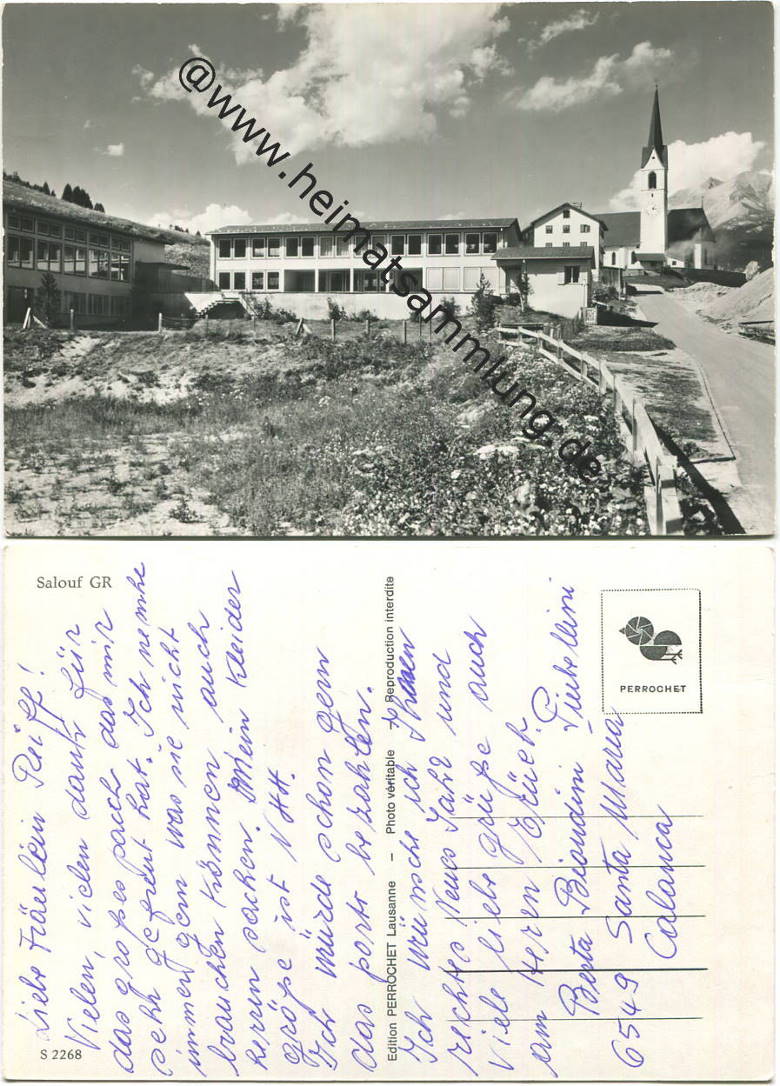 @www.heimatsammlung.de
Salouf GR
Liebe Fräulein Reiff!
Vielen, vielen dank für
das großes pack das mir
sehr gefreut hat. Ich nemhe
immer gern was sie nicht
brauchen können auch
herrin sachen. Mein Kleider
größe ist N 44.
Ich würde schon gern
das porto bezahlen.
Ich wünsche ich Ihnen
rechtes Neues Jahr und
Viele liebe grüße auch
am Heren Brüel.
Berta Biondini
6549 Santa Maria
Calanca
Edition PERROCHET Lausanne – Photo véritable – Reproduction interdite
PERROCHET
S 2268